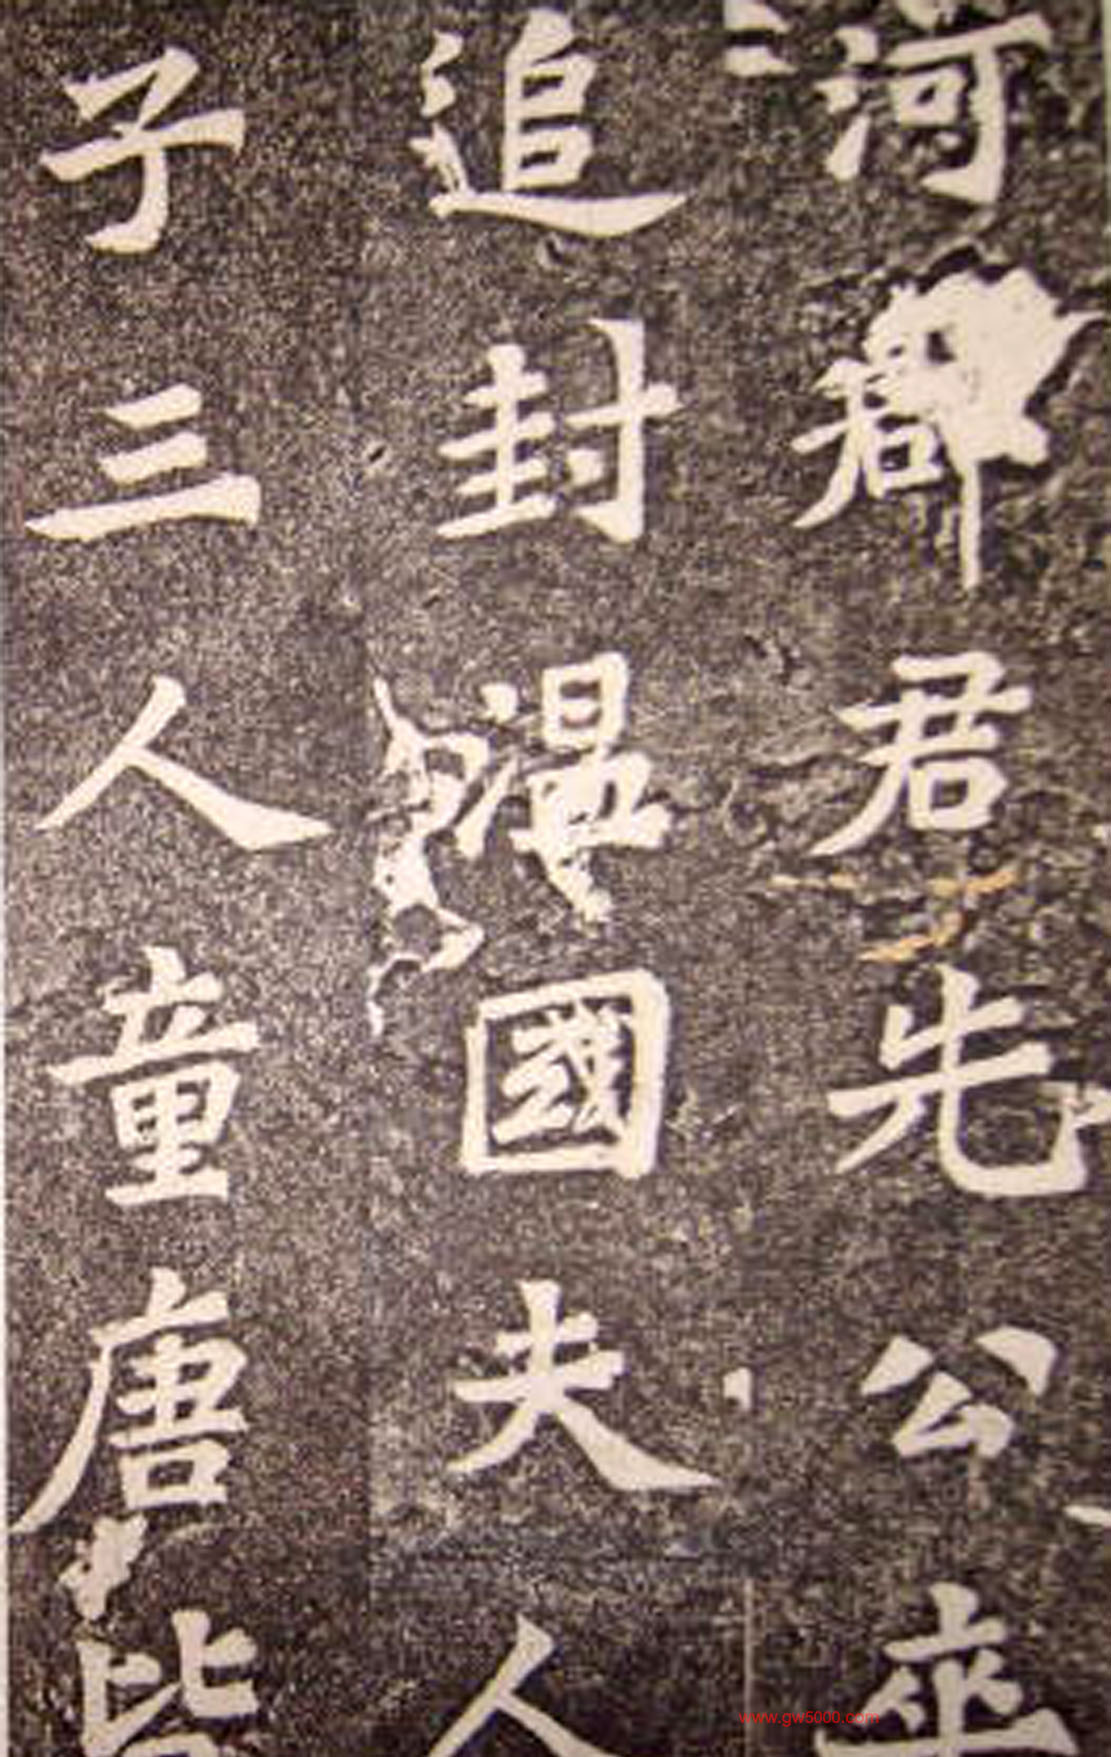 河郡君先公卒
追封溫國夫人
子三人童唐皆
www.gw5000.com